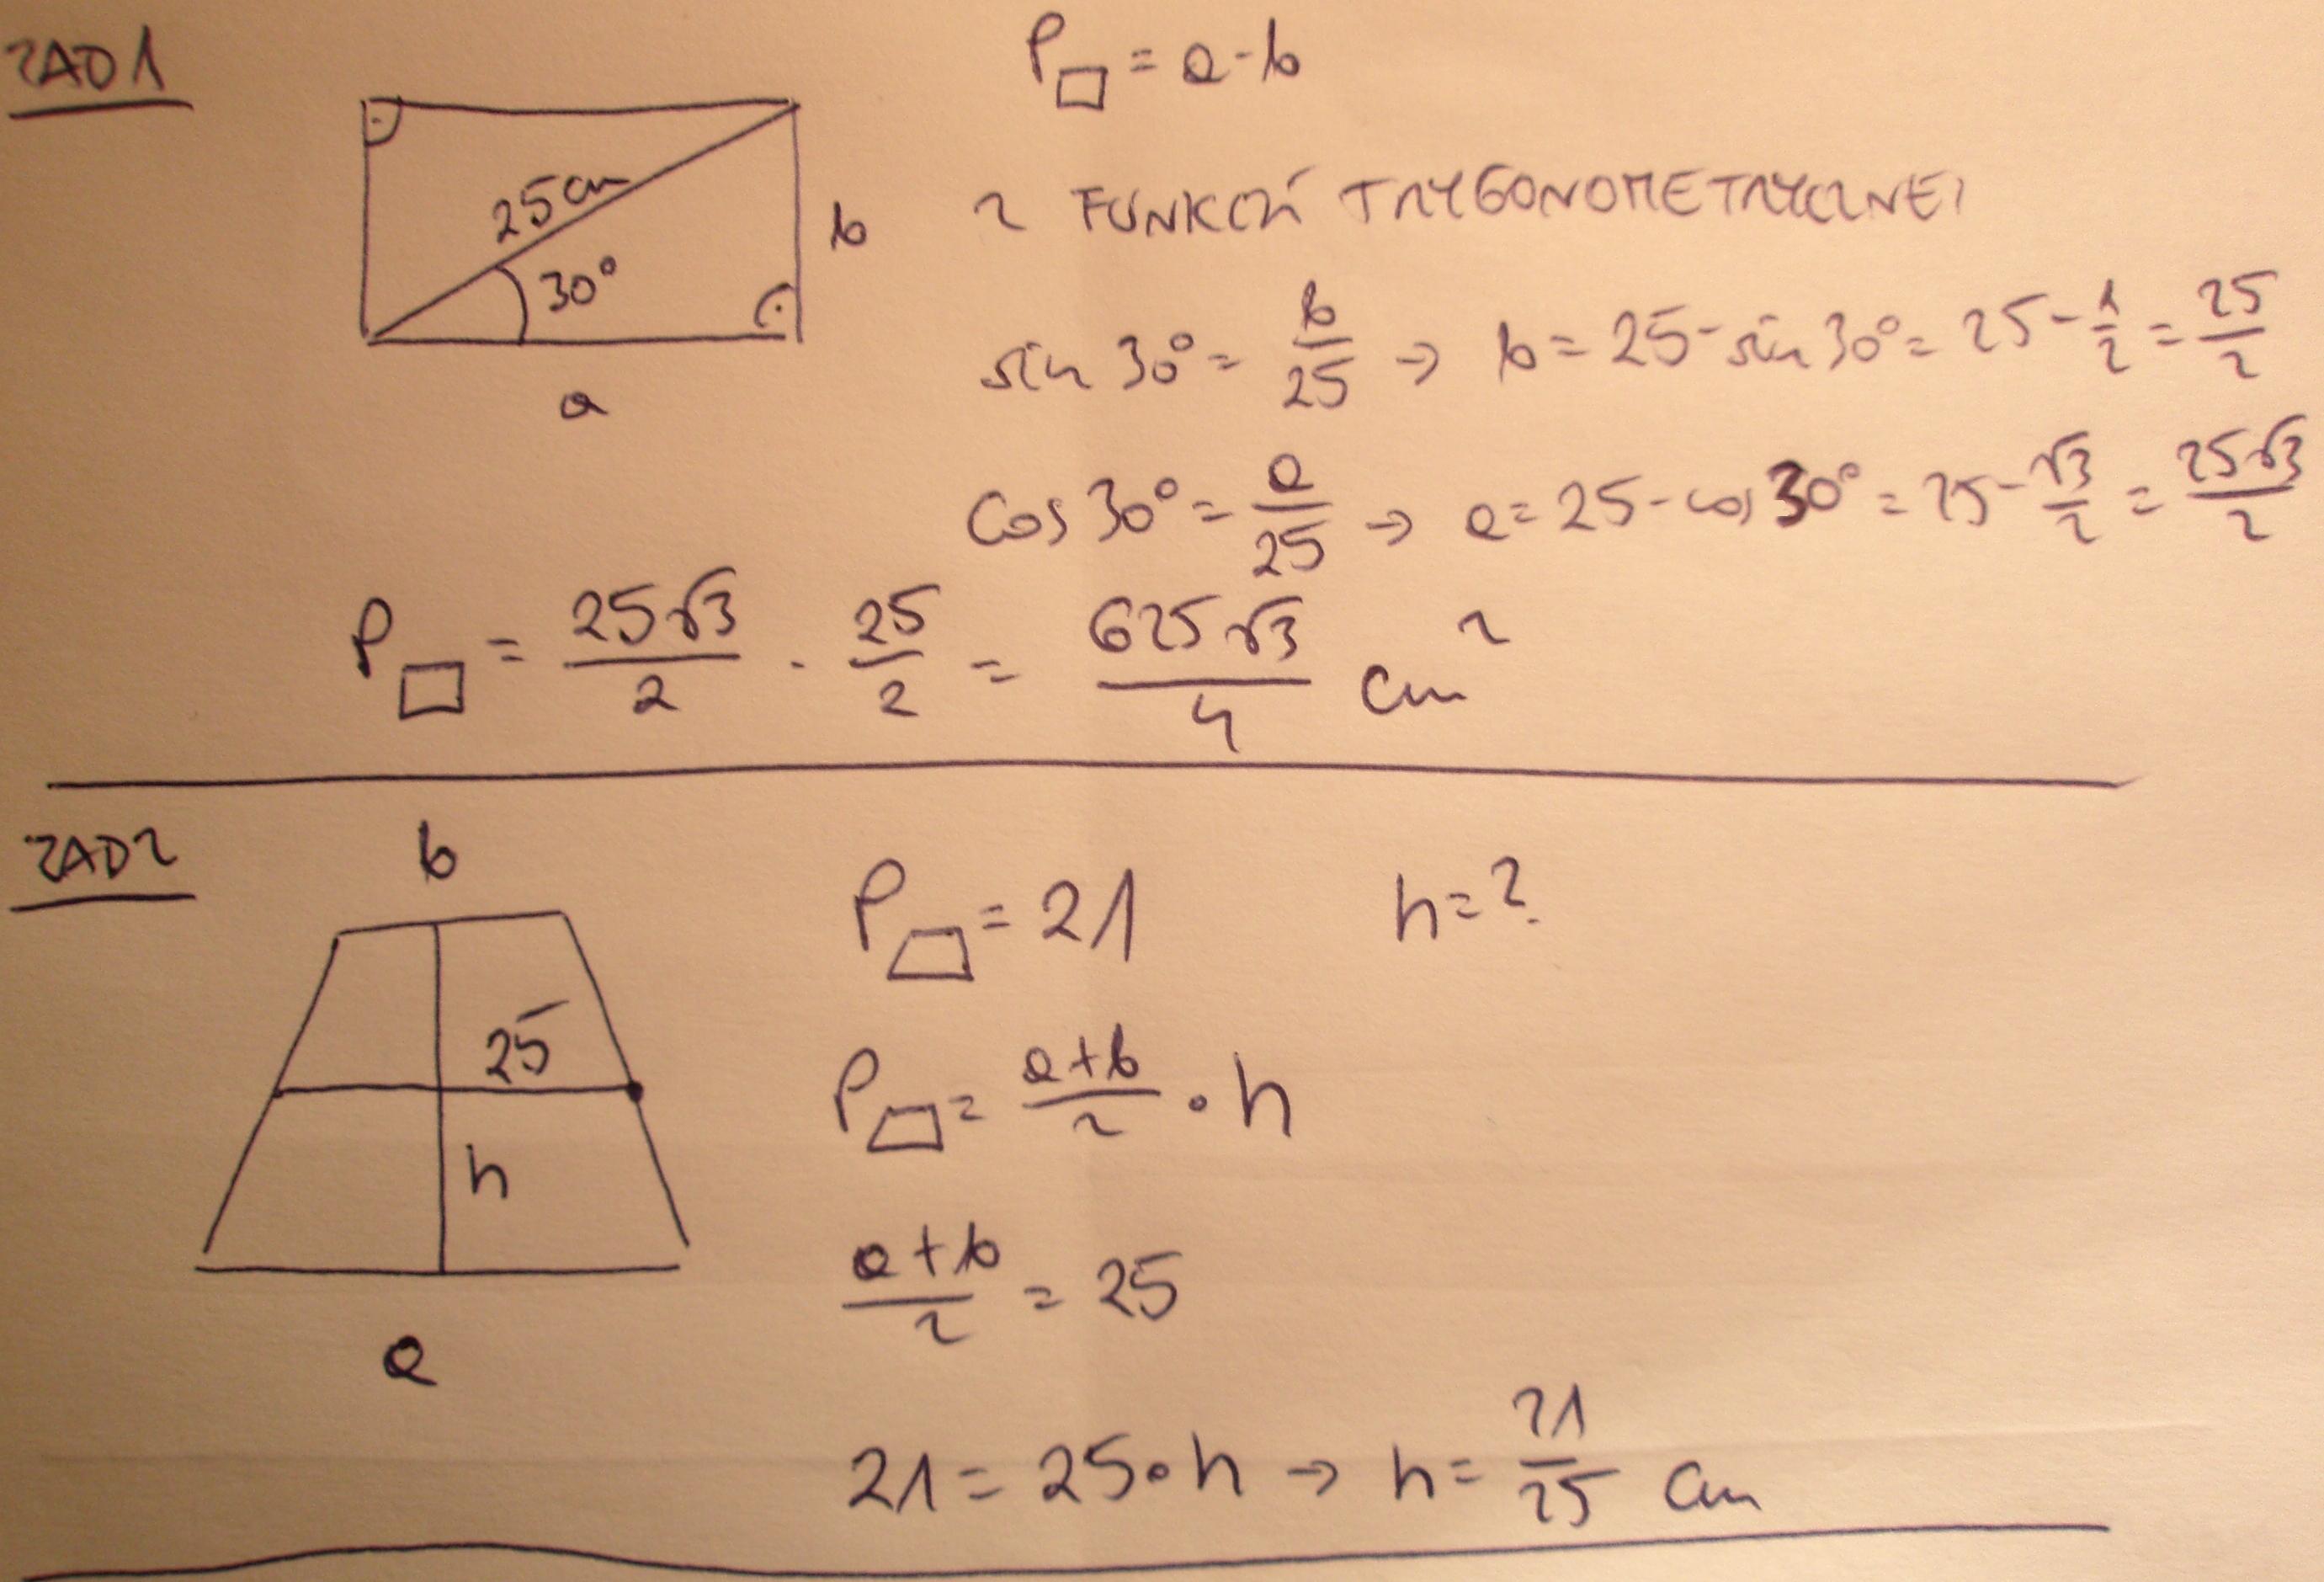 ZAD1
P□ = a · b
25cm
30°
b
a
Z FUNKCJI TRYGONOMETRYCZNEJ
sin 30° = b/25 → b = 25 · sin 30° = 25 · 1/2 = 25/2
cos 30° = a/25 → a = 25 · cos 30° = 25 · √3/2 = 25√3/2
P□ = 25√3/2 · 25/2 = 625√3/4 cm²
ZAD2
b
25
h
a
P⏢ = 21 h = ?
P⏢ = a+b/2 · h
a+b/2 = 25
21 = 25 · h → h = 21/25 cm